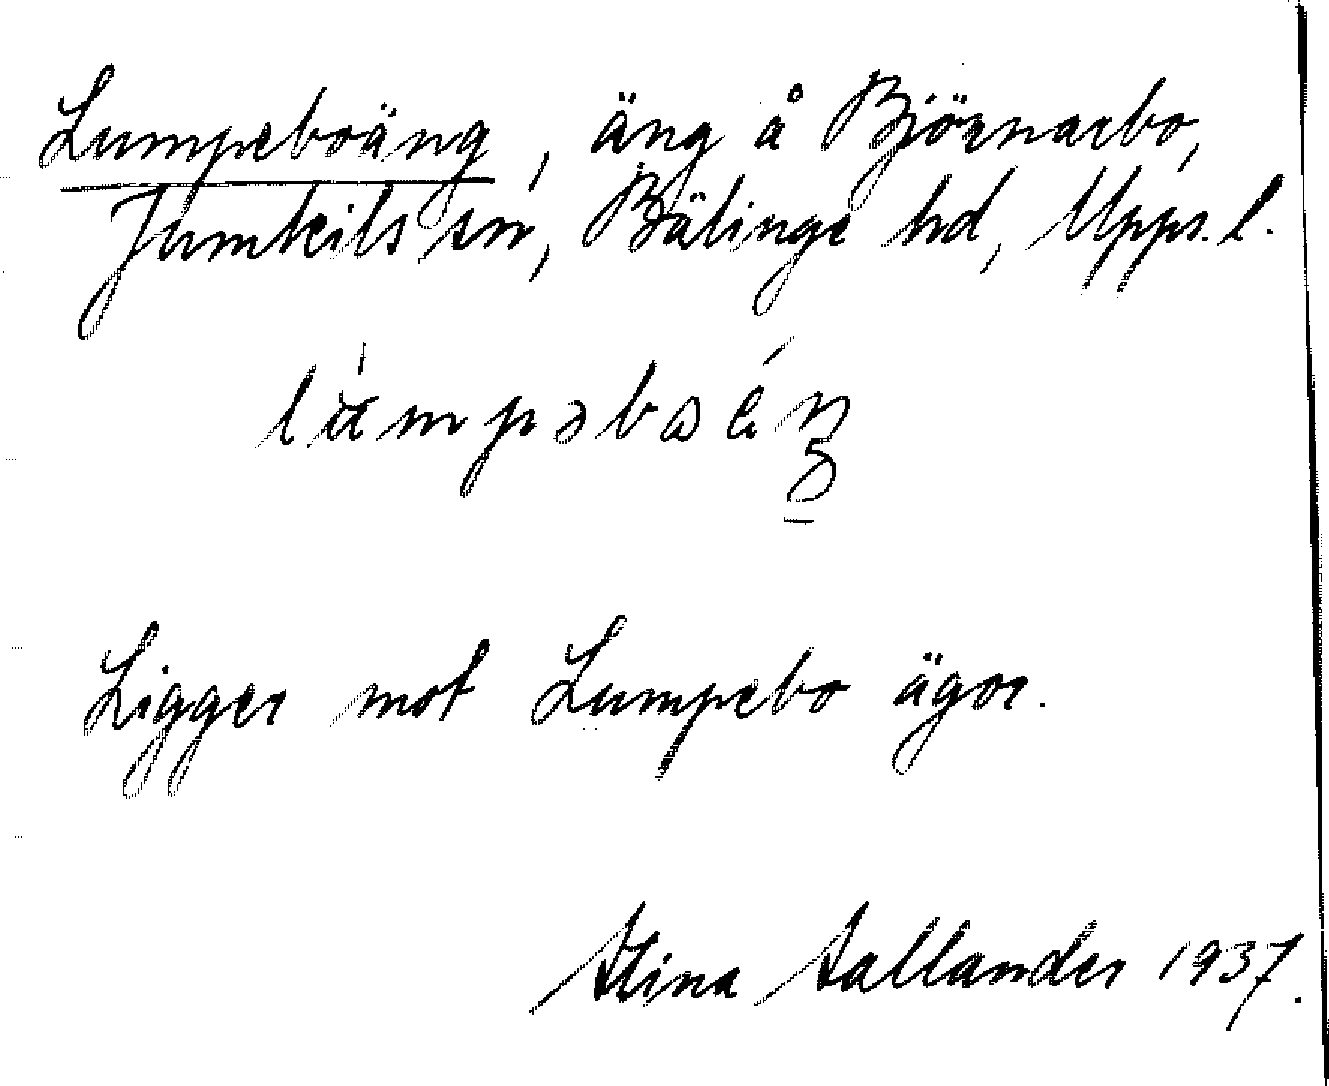 Lumpeboäng, äng å Björnarbo,
Jumkils sn, Bälinge hd, Upps. l.
Ligger mot Lumpebo ägor.
Stina Sallander 1937.